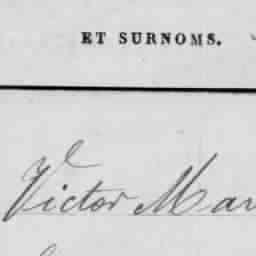 ET SURNOMS.
Victor Mar